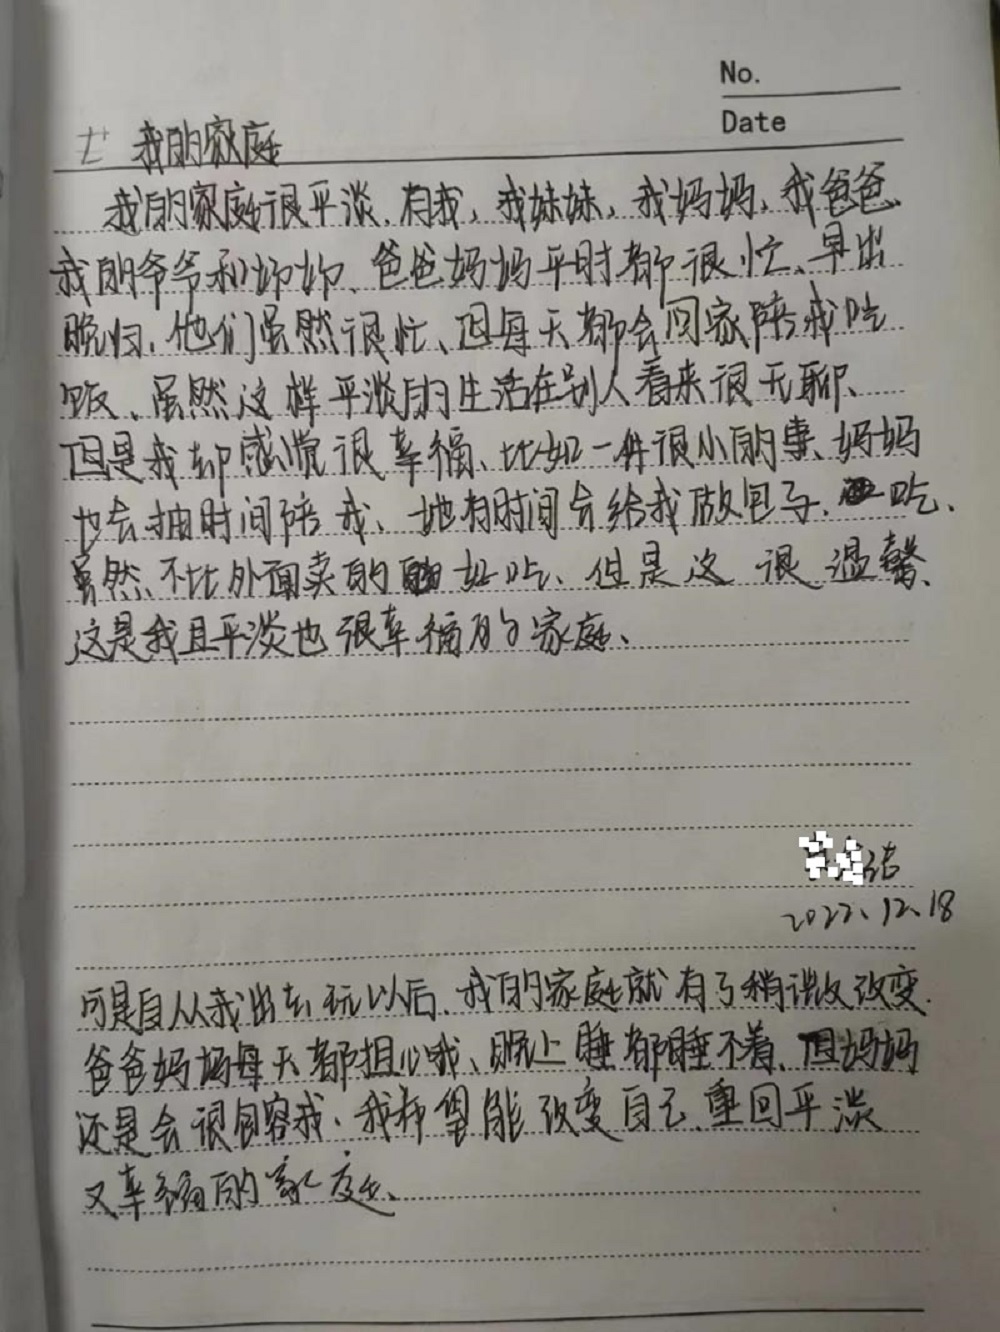 No.
Date
七 我的家庭
我的家庭很平淡、有我，我妹妹，我妈妈，我爸爸、
我的爷爷和奶奶、爸爸妈妈平时都很忙、早出
晚归、他们虽然很忙、但每天都会回家陪我吃
饭、虽然这样平淡的生活在别人看来很无聊、
但是我却感觉很幸福、比如一件很小的事、妈妈
也会抽时间陪我、她有时间会给我做包子、吃、
虽然、不比外面卖的好吃、但是这很温馨、
这是我且平淡也很幸福的家庭、
洁
2022、12、18
可是自从我出去玩以后、我的家庭就有了稍微改变、
爸爸妈妈每天都担心我、晚上睡都睡不着、但妈妈
还是会很包容我、我希望能改变自己、重回平淡
又幸福的家庭、